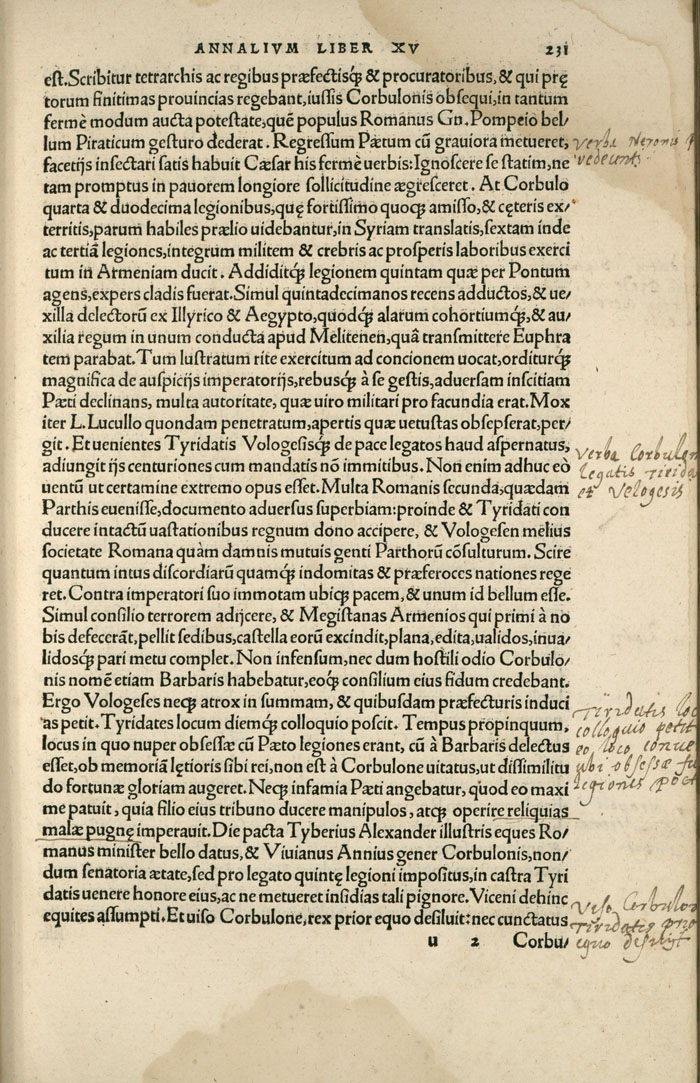 ANNALIVM LIBER XV 231
est.Scribitur tetrarchis ac regibus præfectisq́ꝫ & procuratoribus,& qui prę
torum finitimas prouincias regebant,iussis Corbulonis obsequi,in tantum
fermè modum aucta potestate,quē populus Romanus Gn.Pompeio bel/
lum Piraticum gesturo dederat. Regressum Pætum cū grauiora metueret,
facetijs insectari satis habuit Cæsar his fermè uerbis:Ignoscere se statim,ne
tam promptus in pauorem longiore sollicitudine ægresceret. At Corbulo
quarta & duodecima legionibus,quę fortissimo quoq́ꝫ amisso,& cęteris ex/
territis,parum habiles prælio uidebantur,in Syriam translatis,sextam inde
ac tertiā legiones,integrum militem & crebris ac prosperis laboribus exerci
tum in Armeniam ducit. Addiditq́ꝫ legionem quintam quæ per Pontum
agens,expers cladis fuerat.Simul quintadecimanos recens adductos,& ue/
xilla delectorū ex Illyrico & Aegypto,quodq́ꝫ alarum cohortiumq́ꝫ,& au/
xilia regum in unum conducta apud Melitenen,quâ transmittere Euphra
tem parabat. Tum lustratum rite exercitum ad concionem uocat,orditurq́ꝫ
magnifica de auspicijs imperatorijs,rebusq́ꝫ à se gestis,aduersam inscitiam
Pæti declinans, multa autoritate, quæ uiro militari pro facundia erat. Mox
iter L. Lucullo quondam penetratum,apertis quæ uetustas obsepserat,per/
git. Et uenientes Tyridatis Vologesisq́ꝫ de pace legatos haud aspernatus,
adiungit ijs centuriones cum mandatis nō immitibus. Non enim adhuc eò
uentū ut certamine extremo opus esset. Multa Romanis secunda,quædam
Parthis euenisse,documento aduersus superbiam:proinde & Tyridati con
ducere intactū uastationibus regnum dono accipere, & Vologesen melius
societate Romana quàm damnis mutuis genti Parthorū cōsulturum. Scire
quantum intus discordiarū quamq́ꝫ indomitas & præferoces nationes rege
ret. Contra imperatori suo immotam ubiq́ꝫ pacem,& unum id bellum esse.
Simul consilio terrorem adijcere, & Megistanas Armenios qui primi à no
bis defecerāt,pellit sedibus,castella eorū excindit,plana,edita,ualidos,inua/
lidosq́ꝫ pari metu complet. Non infensum,nec dum hostili odio Corbulo/
nis nomē etiam Barbaris habebatur,eoq́ꝫ consilium eius fidum credebant.
Ergo Vologeses neq́ꝫ atrox in summam, & quibusdam præfecturis induci
as petit. Tyridates locum diemq́ꝫ colloquio poscit. Tempus propinquum,
locus in quo nuper obsessæ cū Pæto legiones erant, cū à Barbaris delectus
esset,ob memoriā lętioris sibi rei,non est à Corbulone uitatus,ut dissimilitu
do fortunæ gloriam augeret. Neq́ꝫ infamia Pæti angebatur, quod eo maxi
me patuit, quia filio eius tribuno ducere manipulos, atq́ꝫ operire reliquias
malæ pugnę imperauit. Die pacta Tyberius Alexander illustris eques Ro/
manus minister bello datus,& Viuianus Annius gener Corbulonis,non/
dum senatoria ætate,sed pro legato quintę legioni impositus,in castra Tyri
datis uenere honore eius,ac ne metueret insidias tali pignore. Viceni dehinc
equites assumpti. Et uiso Corbulone,rex prior equo desiluit:nec cunctatus
u 2 Corbu/
Verba Neronis
Verba Corbulon
legatis tirida
et Vologesis
Tiridatis loc
colloquio petit
eo loco conue
ubi obsessæ fu
legiones poet
Viso Corbulon
Tiridates prio
equo desilijt